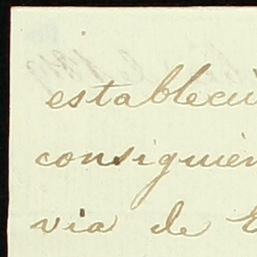 establecu
consiguien
via de E